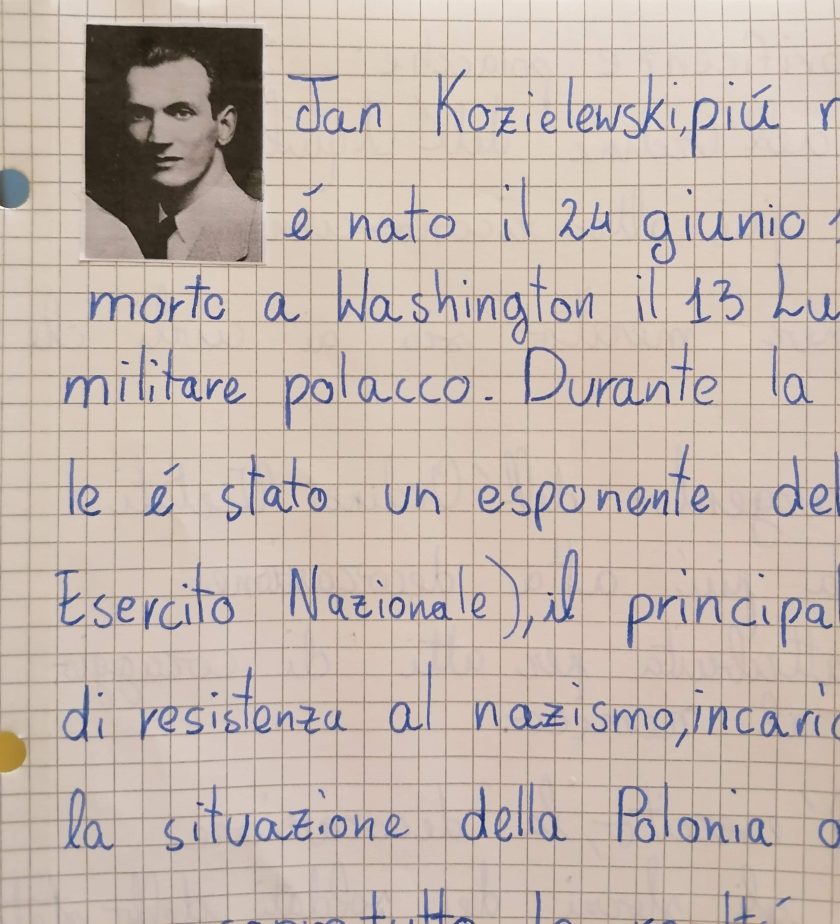 Jan Kozielewski, piú
é nato il 24 giunio
morto a Washington il 13 Lu
militare polacco. Durante la
le é stato un esponente del
Esercito Nazionale), il principal
di resistenza al nazismo, incaric
la situazione della Polonia